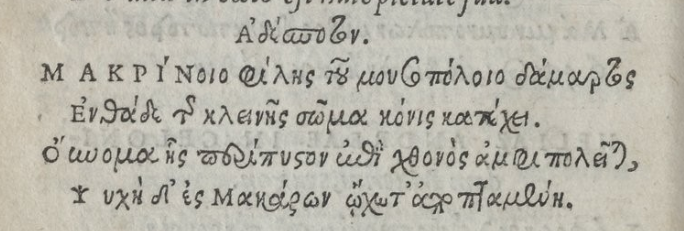 Ἀδέσποτον.
ΜΑΚΡΊΝοιο φίλης τοῦ μουσοπόλοιο δάμαρτος
Ἐνθάδε τῆς κλεινῆς σῶμα κόνις κατέχει.
Ὄυνομα ἧς περίπυστον ἐπὶ χθονὸς ἀμφιπολεῖται,
Ψυχὴ δ' ἐς Μακάρων ᾤχετ' ἀποπταμένη.